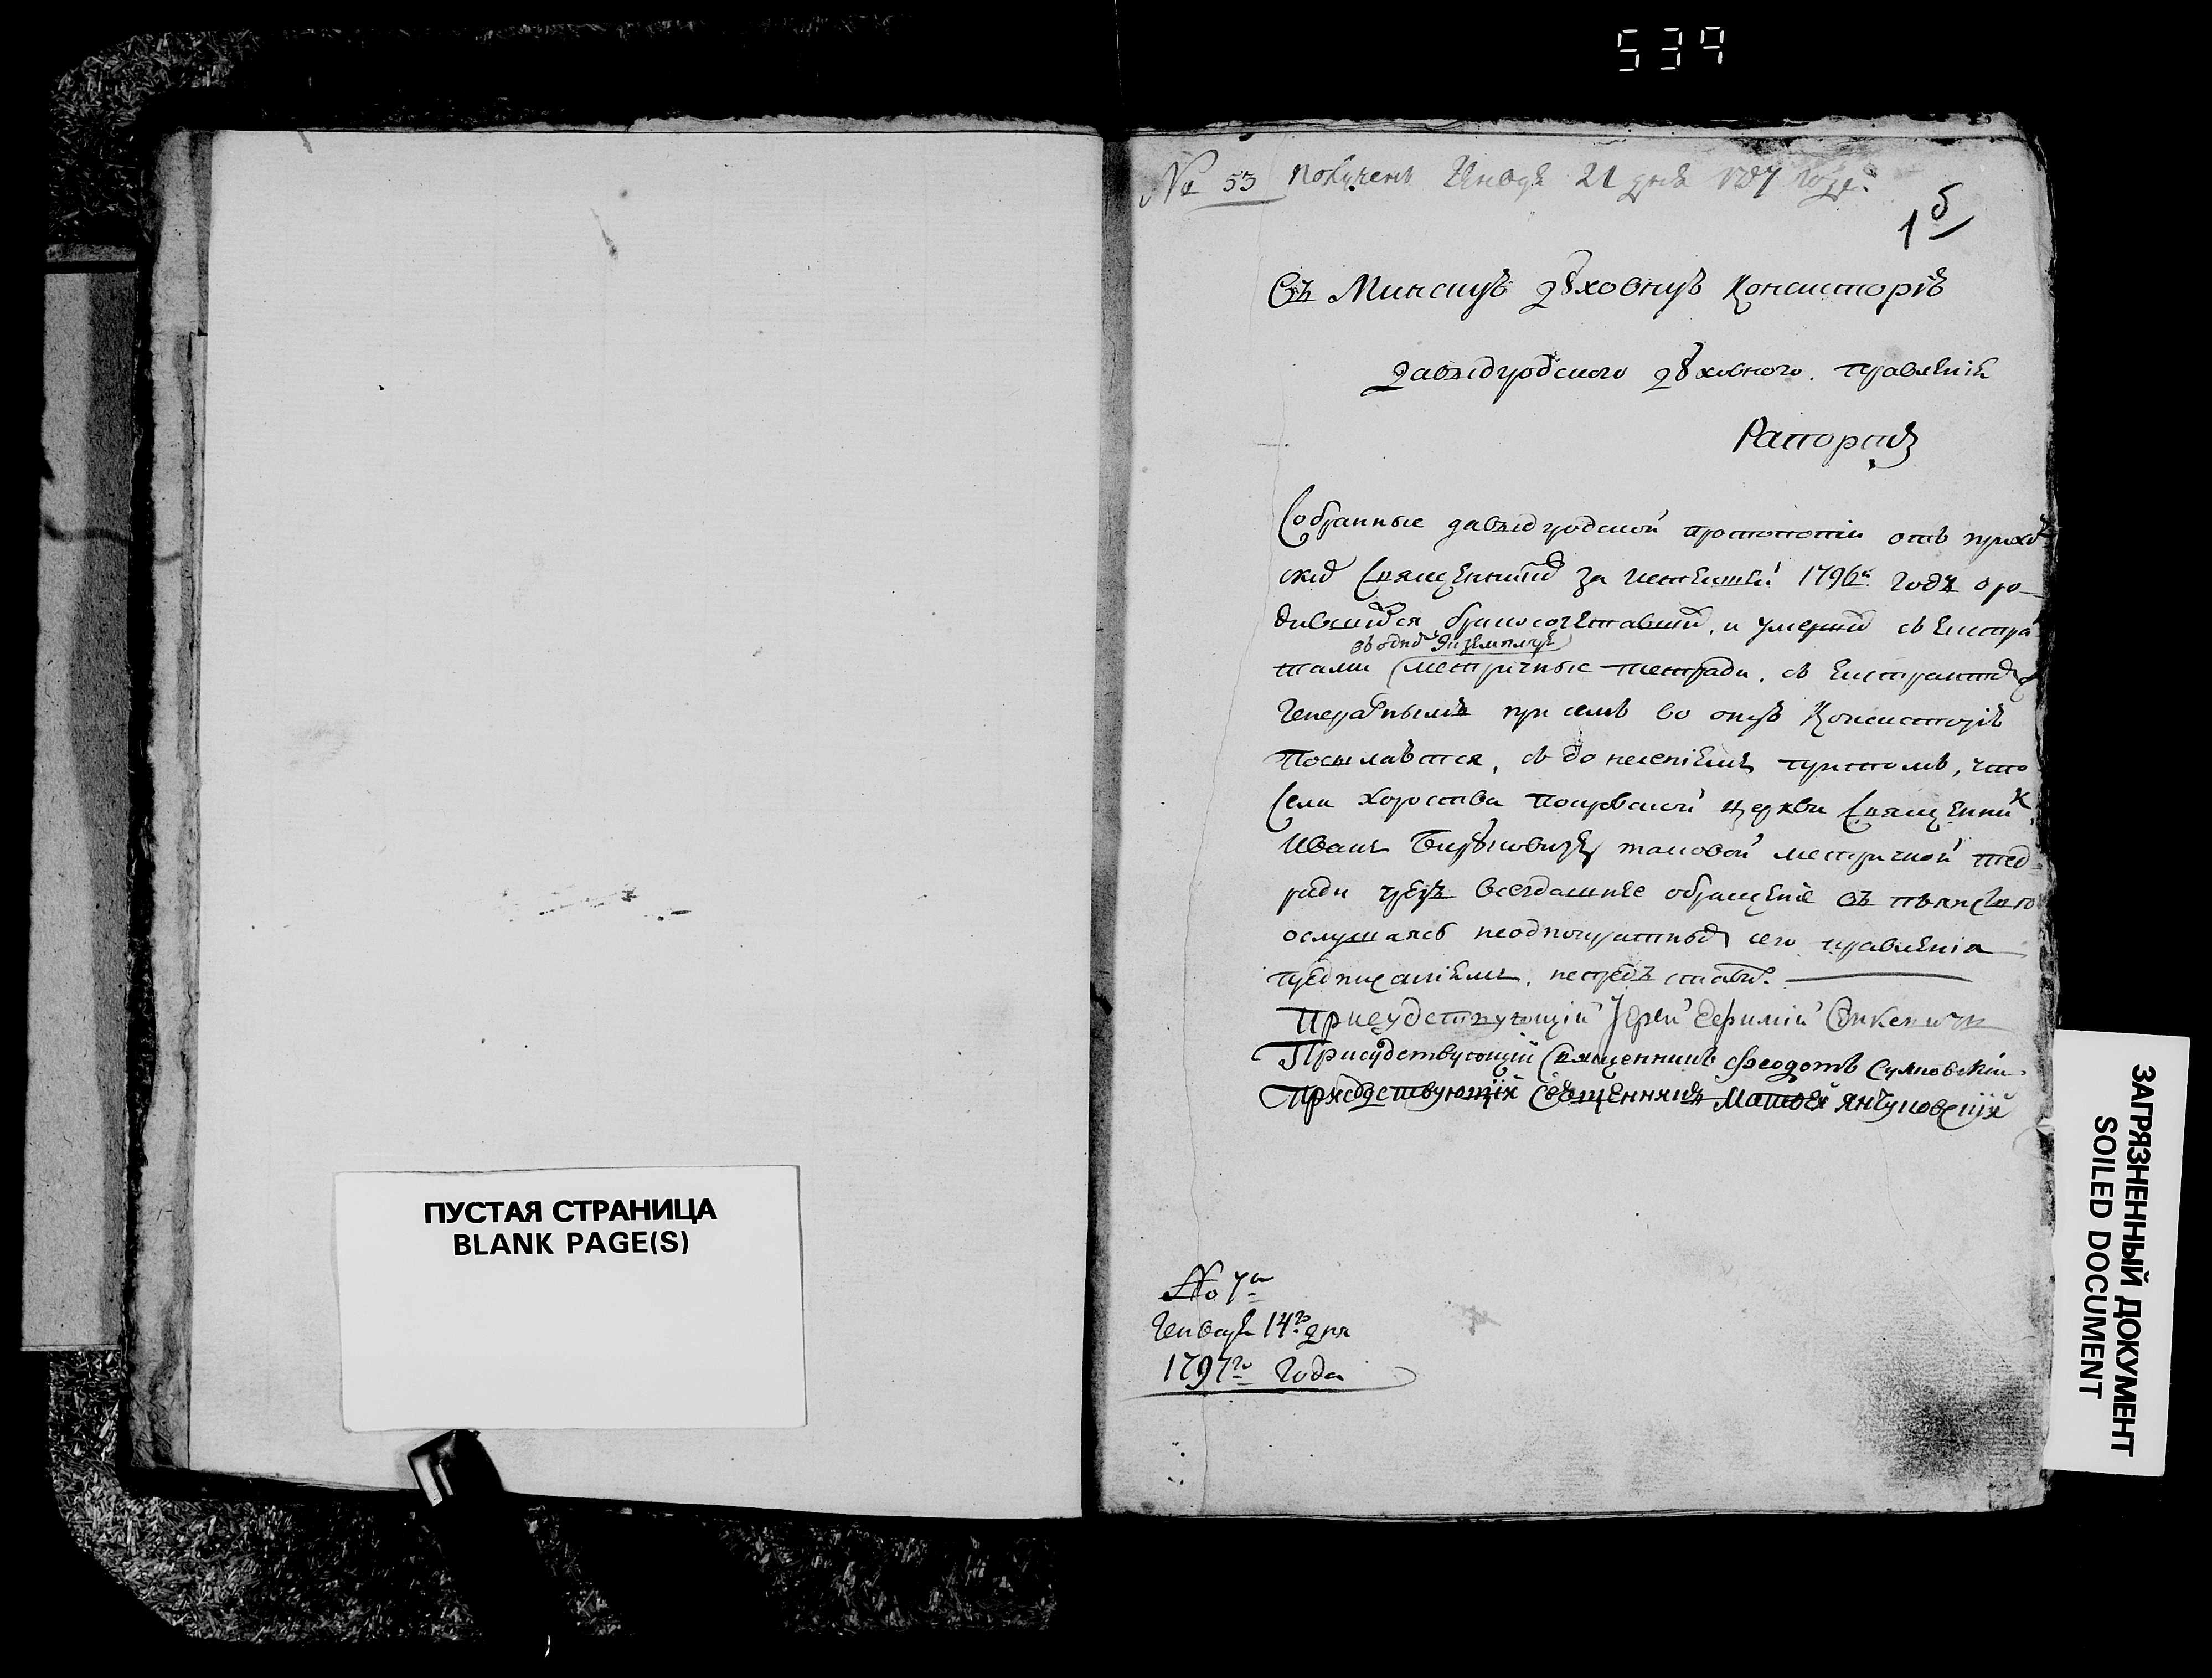 539
ПУСТАЯ СТРАНИЦА
BLANK PAGE(S)
№ 53 полученъ Генваря 21 дня 1797 года
1 б
Въ Минскую духовную Консисторію
Давыдгродского духовного правленія
Рапортъ
Собранные давыдгродской протопопіи отъ приход
ских Священников за истекшей 1796й годъ о ро
дившихся бракосочетавших, и умерших съ екстра
въ одном экземпляре
ктами метричные тетради, съ екстрактом
генералным при семъ во оную Консисторію
посылаются, съ донесеніемъ притомъ, что
села Хороства покровской церкви Священник
Иванъ таковой метричной тет
ради чрезъ всегдашнее обращеніе въ пьянстве
ослушаясь неоднократных сего правленія
предписаніемъ, непредъставил.
Присудствующій Іерей Ефимій
Присудствующій Священникъ Феодотъ Сулковскій
Присудствующій Священникъ Матфей Янчуковскій
№ 7й
Генваря 14го дня
1797го Года
ЗАГРЯЗНЕННЫЙ ДОКУМЕНТ
SOILED DOCUMENT